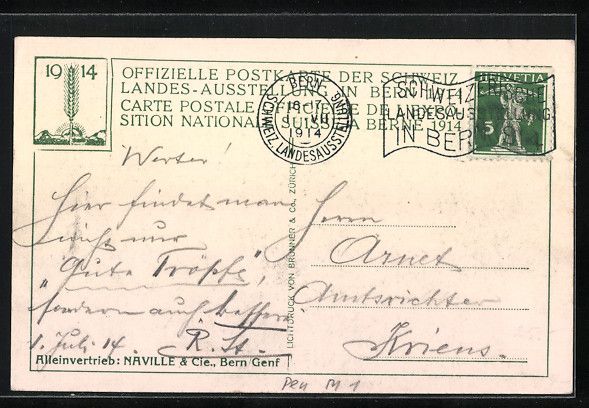 19 14
OFFIZIELLE POSTKARTE DER SCHWEIZ.
LANDES-AUSSTELLUNG IN BERN 1914
CARTE POSTALE OFFICIELLE DE L'EXPO-
SITION NATIONALE SUISSE A BERNE 1914
BERN
SCHWEIZ. LANDESAUSSTELLUNG
1914
SCHWEIZERISCHE
LANDESAUSSTELLUNG
IN BERN
HELVETIA
5
Werter!
Hier findet man
nicht nur
"Gute Tröpfe",
sondern auch
1. Juli 14. R. St.
Alleinvertrieb: NAVILLE & Cie., Bern Genf
LICHTDRUCK VON BRUNNER & Co., ZÜRICH
Herrn
Arnet
Amtsrichter
Kriens.